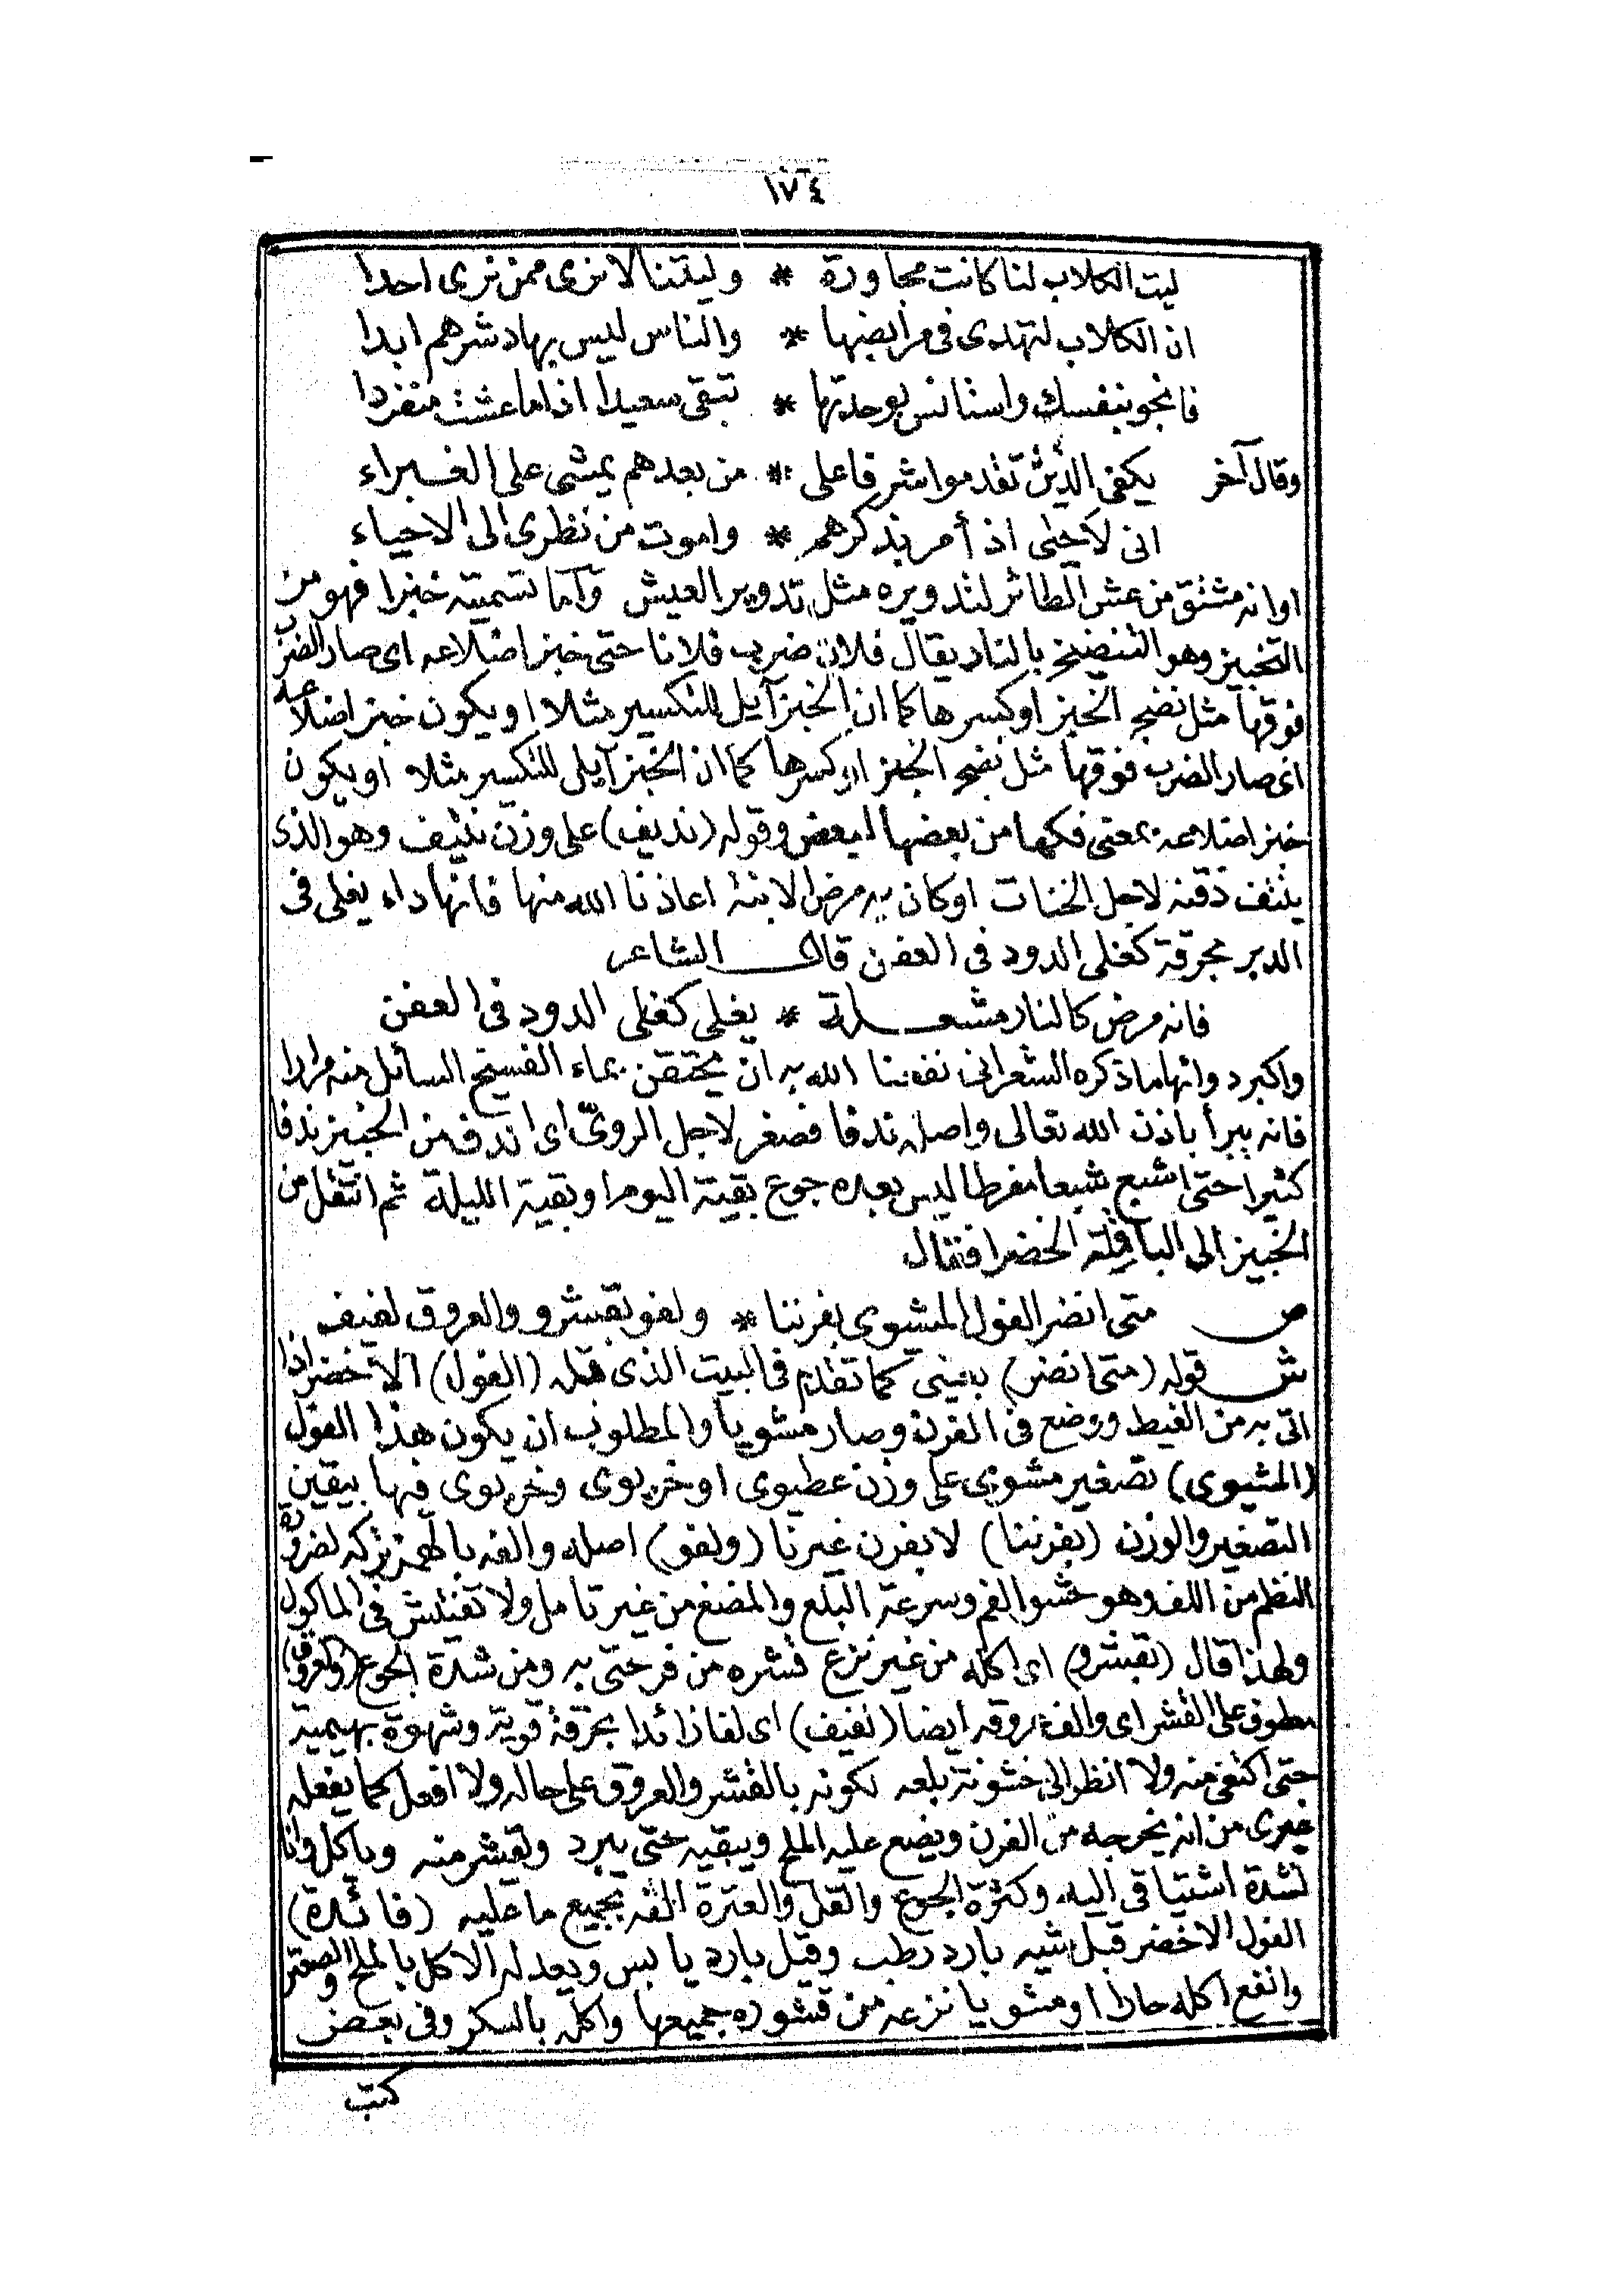 ١٧٤
ليت الكلاب لنا كانت مجاورة * وليتنا لا نرى ممن نرى احدا
ان الكلاب لتهدى فى مرابضها * والناس ليس بهاد شرهم ابدا
فانجو بنفسك واستانس بوحدتها * تبقى سعيدا اذا ما عشت منفردا
وقال آخر يكفى الذين تقدموا شرفا على * من بعدهم يمشى على الغبراء
انى لاحيى اذ أمر بذكرهم * واموت من نظرى الى الاحياء
اوانه مشتق من عش الطائر لتدويره مثل تدوير العيش وأما تسميته خبزا فهو من
التخبيز وهو التنضيج بالنار يقال فلان ضرب فلانا حتى خبز اضلاعه اى صار الضرب
فوقها مثل نضج الخبز او كسرها كما ان الخبز آيل للتكسير مثلا او يكون خبز اضلاعه
اى صار الضرب فوقها مثل نضج الخبز او كسرها كما ان الخبز آيلى للتكسير مثلا او يكون
خبز اضلاعه بمعنى فكها من بعضها لبعض وقوله (نديف) على وزن نتيف وهو الذى
ينتف ذقنه لاجل الخنات او كان به مرض الابنة اعاذنا الله منها فانها داء يغلى فى
الدبر بحرقة كغلى الدود فى العفن قال الشاعر
فانه مرض كالنار مشعلة * يغلى كغلى الدود فى العفن
واكبر د وائها ما ذكره الشعرانى نفعنا الله به ان يحتقن بماء الفسيخ السائل منه مرارا
فانه يبرأ باذن الله تعالى واصله ندفا فصغر لاجل الروىّ اى اندف من الخبيز ندفا
كثيرا حتى اشبع شبعا مفرطا ليس بعده جوع بقية اليوم او بقية الليلة ثم انتقل من
الخبيز الى الباقلة الخضرا فقال
ص متى انضر الفول المشيوى بفرننا * ولفو بقشرو والعروق لفيف
ش قوله (متى انضر) بعينى كما تقدم فى البيت الذى قبله (الفول) الاخضر اذا
اتى به من الغيط ووضع فى الفرن وصار مشويا والمطلوب ان يكون هذا الفول
(المشيوى) تصغير مشوى على وزن عطيوى او خريوى وخريوى فيها بيقين
التصغير والوزن (بفرننا) لا بفرن غيرنا (ولفو) اصله والفه بالهمز تركه لضرورة
النظم من اللف وهو حشو الفم وسرعة البلع والمضغ من غير تامل ولا تفتيش فى الماكول
ولهذا قال (بقشرو) اى اكله من غير نزع قشره من فرحتى به ومن شدة الجوع (والعروق)
معطوف على القشر اى والف بعروقه أيضا (لفيف) اى لفا زائدا بحرقة قوية وشهوة بهيمية
حتى اكتفى منه ولا انظر الى خشونة بلعه لكونه بالقشر والعروق على حاله ولا افعل كما يفعله
غيرى من انه يخرجه من الفرن ويضع عليه الملح ويبقيه حتى يبرد ولقشر منه وياكل وانا
لشدة اشتياقى اليه وكثرة الجوع والقل والعترة الفه بجميع ما عليه (فائدة)
الفول الاخضر قبل شيه بارد رطب وقيل بارد يابس ويعدله الاكل بالملح والصعتر
وانفع اكله حارا او مشويا نزعه من قشوره جميعها واكله بالسكر وفى بعض
كتب